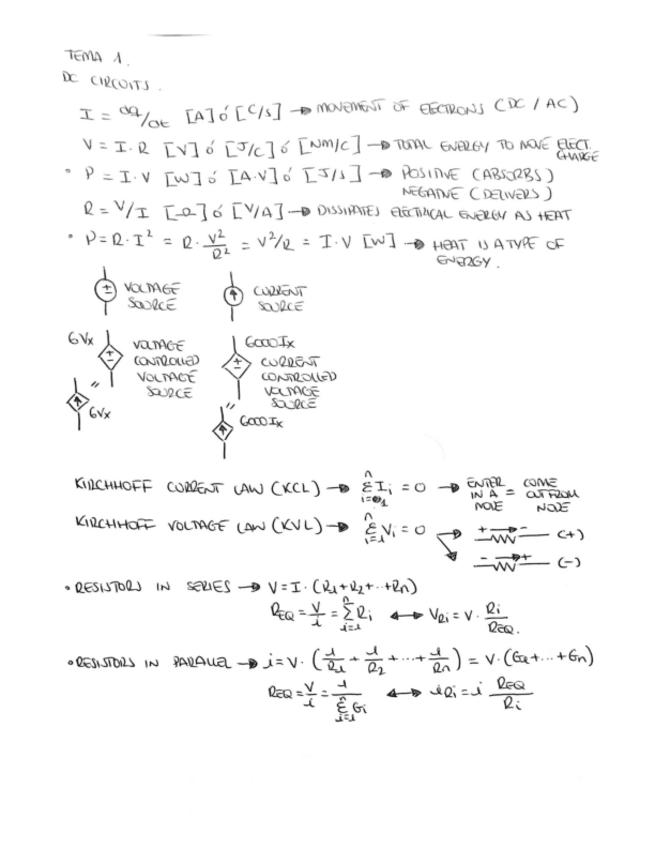 TEMA 1.
DC CIRCUITS.
I = dq/dt [A] ó [C/s] → MOVEMENT OF ELECTRONS (DC / AC)
V = I · R [V] ó [J/C] ó [Nm/C] → TOTAL ENERGY TO MOVE ELECT. CHARGE
• P = I · V [W] ó [A·V] ó [J/s] → POSITIVE (ABSORBS)
NEGATIVE (DELIVERS)
R = V/I [Ω] ó [V/A] → DISSIPATES ELECTRICAL ENERGY AS HEAT
• P = R · I² = R · V²/R² = V²/R = I · V [W] → HEAT IS A TYPE OF
ENERGY.
VOLTAGE SOURCE
CURRENT SOURCE
6Vx
VOLTAGE CONTROLLED VOLTAGE SOURCE
"
6Vx
6000Ix
CURRENT CONTROLLED VOLTAGE SOURCE
"
6000Ix
KIRCHHOFF CURRENT LAW (KCL) → n Σ i=1 Ii = 0 → ENTER IN A NODE = COME OUT FROM NODE
KIRCHHOFF VOLTAGE LAW (KVL) → n Σ i=1 Vi = 0 + - (+)
- + (-)
• RESISTORS IN SERIES → V = I · (R1+R2+··+Rn)
REQ = V/i = n Σ i=1 Ri ↔ VRi = V · Ri/REQ.
• RESISTORS IN PARALLEL → i = V · (1/R1 + 1/R2 + ··· + 1/Rn) = V · (G1+···+Gn)
REQ = V/i = 1/n Σ i=1 Gi ↔ iRi = i REQ/Ri